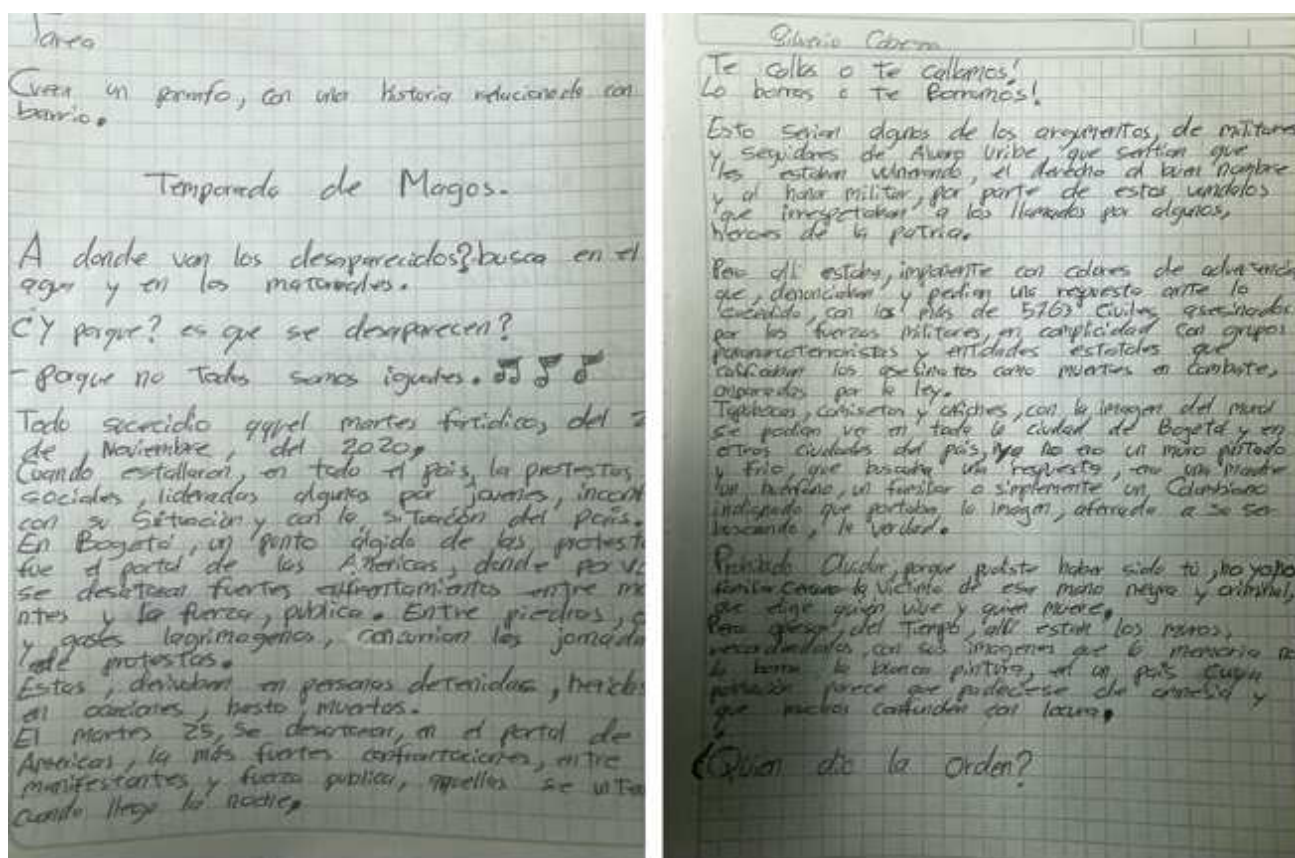 Tarea
Crear un parrafo, con una historia relacionada con
barrio.
Temporada de Magos.
A donde van los desaparecidos? busca en el
agua y en los matorrales.
¿Y porque? es que se desaparecen?
- porque no todos somos iguales.
Todo sucecidio aquel martes fatidico, del 2
de, Noviembre, del 2020,
Cuando estallaron, en todo el pais, la protestas,
sociales, lideradas algunas por jovenes, incon
con su situación y con la situación del pais.
En Bogotá, un punto algido de las protest
fue el portal de las Americas, donde por v
se desataron fuertes enfrentamientos entre m
ntes y la fuerza, publica. Entre piedras,
y gases lagrimogenos, concurrian las jornada
de protestas.
Estas, derivaban en personas detenidas, herida
en ocaciones, hasta, muertos.
El martes 25, se desataron, en el portal de
Americas, la más fuertes confrontaciones, entre
manifestantes y fuerza publica, aquellas se
cuando llego la noche.
Silverio
Te callas o te callamos!
Lo borras o te Borramos!
Esto serian algunos de los argumentos, de militare
y seguidores de Alvaro Uribe que sentian que
les estaban vulnerando, el derecho al buen nombre
y al honor militar, por parte de estos vandalos
que irrespetaban a los llamados por algunos,
heroes de la patria.
Pero alli estaba, imponente con colores de advertencia
que, denunciaban y pedian una respuesta ante lo
sucedido, con los más de 5763 civiles asesinados
por las fuerzas militares, en complicidad con grupos
y entidades estatales que
calificaban los asesinatos como muertes en combate,
amparados por la ley.
Tapabocas, camisetas y afiches, con la imagen del mural
se podian ver en toda la ciudad de Bogotá y en
otras ciudades del pais, ya no era un muro pintado
y frio, que buscaba una respuesta, era una madre
un huerfano, un familiar o simplemente un Colombiano
indignado que portaba, la imagen, aferrado a su ser
buscando, la verdad.
Prohibido Olvidar, porque pudiste haber sido tú, yo
familiar cercano la victima de esa mano negra y criminal,
que elige quien vive y quien muere,
Pero apesar, del tiempo, alli estan los muros,
con sus imagenes que la memoria no
la borra la blanca pintura, en un pais cuya
población parece que padeciese de amnesia y
que muchos confunden con locura.
¿Quien dio la Orden?